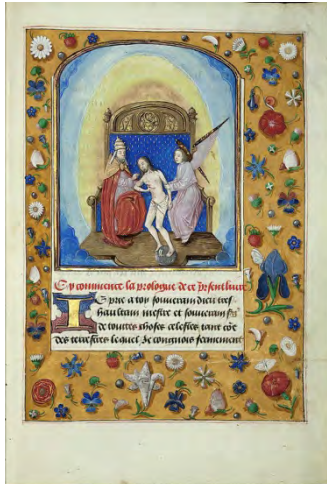 Cy commence la prologue de ce present liure
IE prie a toy souuerain dieu tres
haultain mestre et souuerain
de touttes choses celestes tant cõe
des terrestres lequel Je congnois fermement